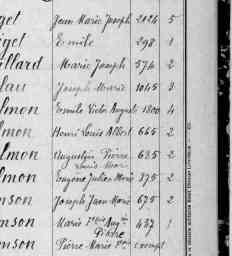 get Jean Marie Joseph 2124 5
iget Emile 298 1
illard Marie Joseph 574 2
lau Joseph Marie 1045 3
lmon Emile Victor August 1800 4
lmon Henri Louis Albert 665 2
almon Augustin Pierre 635 2
Louis Marie
lmon Eugène Julien Marie 375 2
nson Joseph Jean Marie 675 2
mson Marie 437 1
Pierre
nson Pierre Marie exempt